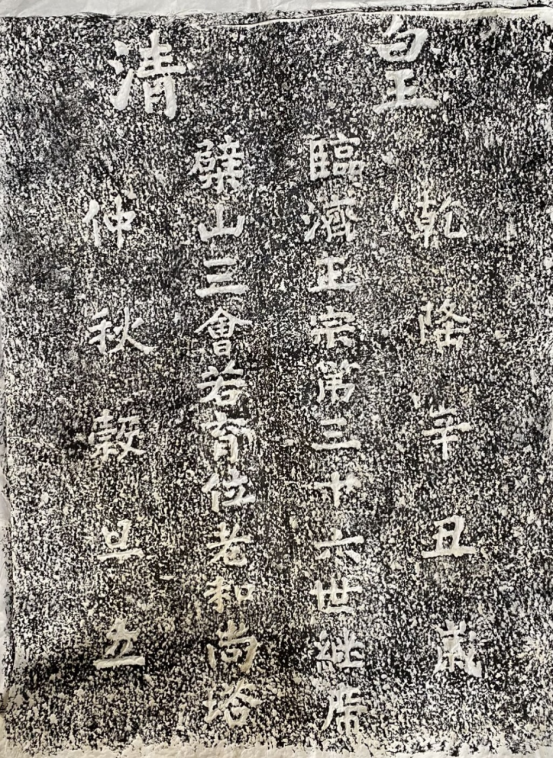 皇清
乾隆辛丑歲
臨濟正宗第三十六世繼席
檗山三會若育位老和尚塔
仲秋穀旦立